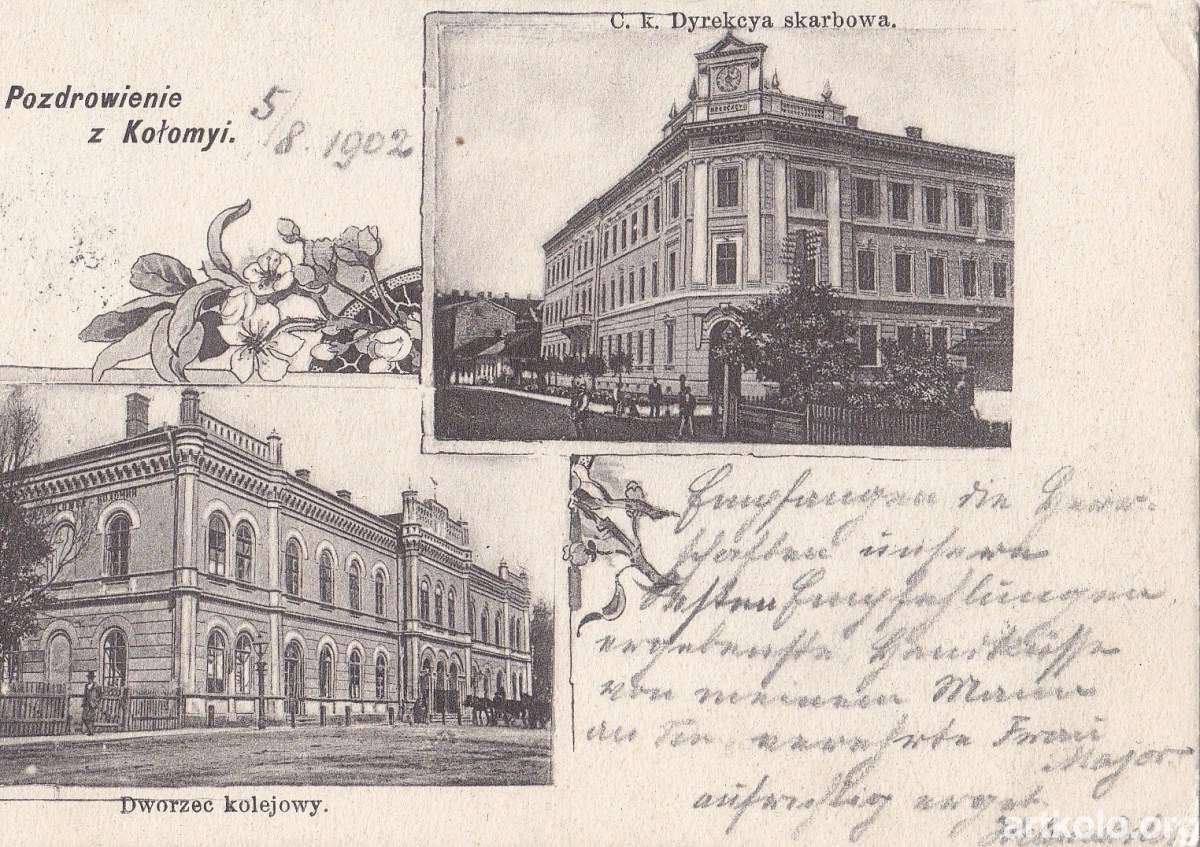 C. k. Dyrekcya skarbowa.
Pozdrowienie
z Kołomyi.
5/8. 1902
Empfangen die Herr-
schaften unsere
besten Empfehlungen
ergebenste Handküsse
von meinem Mann
an Sie verehrte Frau
Major
aufrichtig ergeb.
Dworzec kolejowy.
artkolo.org